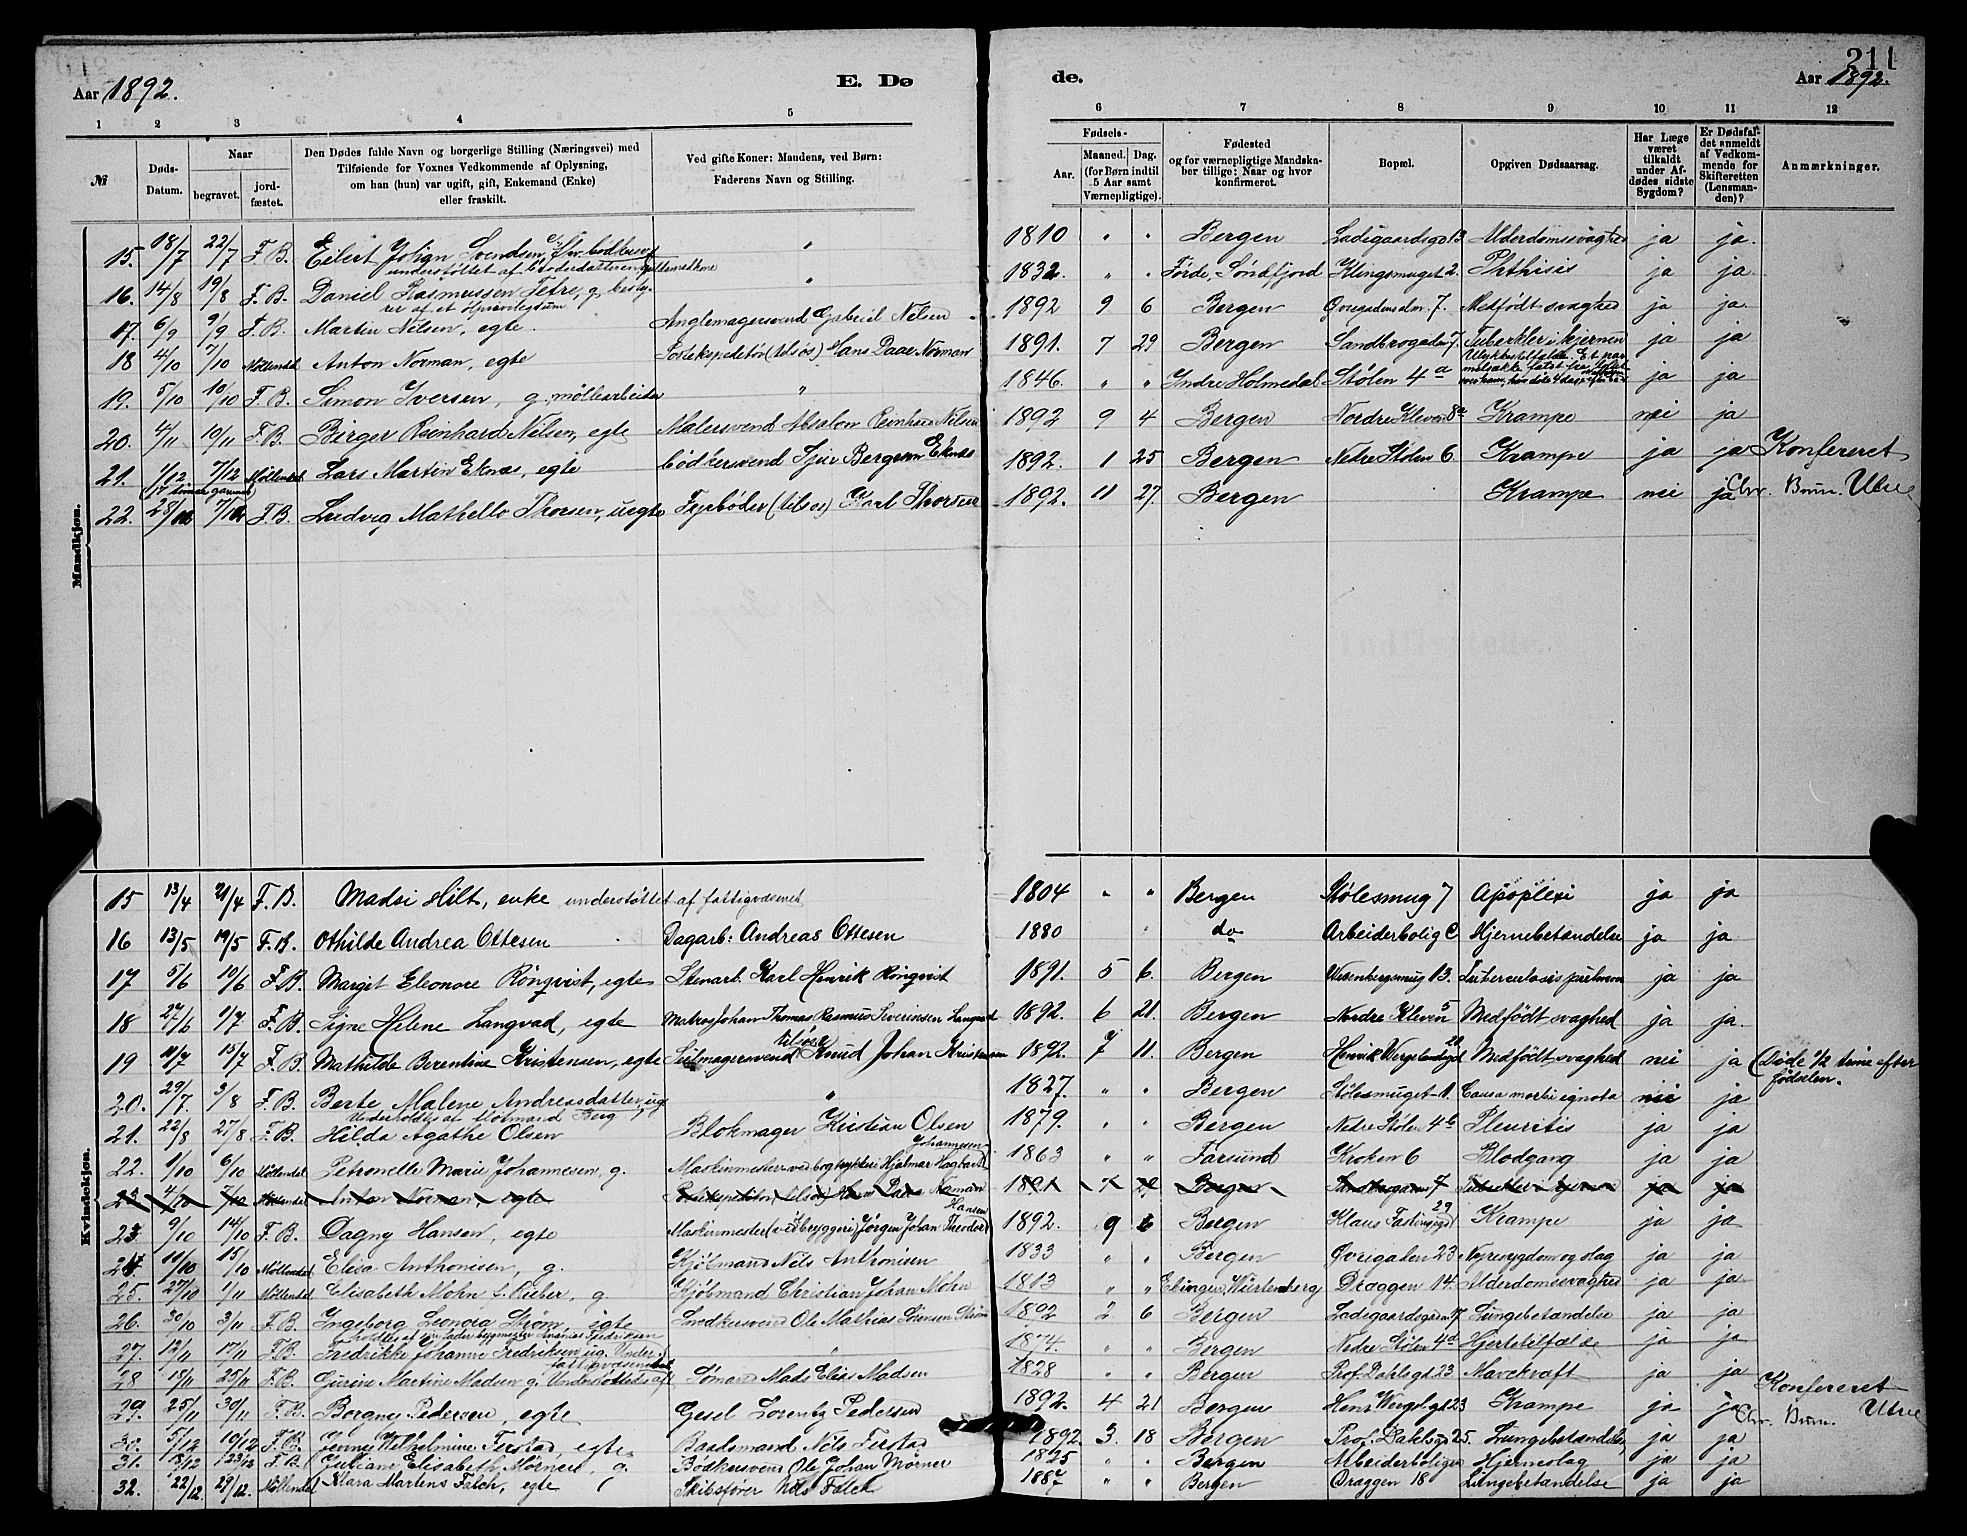 211
Aar 1892. E. Dø de. Aar 1892.
1 2 3 4 5 6 7 8 9 10 11 12
№ Døds-Datum. Naar begravet. jord-fæstet. Den Dødes fulde Navn og borgerlige Stilling (Næringsvei) med Tilføiende for Voxnes Vedkommende af Oplysning, om han (hun) var ugift, gift, Enkemand (Enke) eller fraskilt. Ved gifte Koner: Mandens, ved Børn: Faderens Navn og Stilling. Fødsels- Aar. Maaned. Dag. (for Børn indtil 5 Aar samt Værnepligtige). Fødested og for værnepligtige Mandskaber tillige: Naar og hvor konfirmeret. Bopæl. Opgiven Dødsaarsag. Har Læge været tilkaldt under Afdødes sidste Sygdom? Er Dødsfaldet anmeldt af Vedkommende for Skifteretten (Lensmanden)? Anmærkninger.
Mandkjøn.
15. 18/7 22/7 F.B. Eilert Johan Svendsen, fhv. bødkersvd " 1810 " " Bergen Ladegaardsgd 13 Alderdomssvaghed ja ja.
understøttet af broderdatteren
16. 14/8 19/8 F.B. Daniel Rasmussen Tefre, g. besty- " 1832. " " Førde, Søndfjord Klingsmuget 2. Phthisis ja ja
rer af et
17. 6/9 9/9 F.B. Martin Nilsen, egte. Anglemagersvend Gabriel Nilsen 1892 9 6 Bergen Øvregadensalm. 7. Medfödt svaghed ja ja.
18 4/10 7/10 Möllendal Anton Norman, egte Postekspeditør (tilsøs) Hans Daae Norman 1891. 7 29 Bergen Sandbrogaden 7. Tuberkler i hjernen ja ja
19. 5/10 10/10 F.B. Simon Iversen, g. møllearbeider " 1846. " " Yndre Holmedal Stølen 4a Ulykkestilfælde. Et par melsække faldt fra loftet over ham, han døde 4 dage efter ja ja
20. 4/11 10/11 F.B. Birger Reinhard Nilsen, egte Malersvend Absalon Reinhard Nilsen 1892 9 4 Bergen Nordre Kleven 8a Krampe nei ja
21. 1/12 7/12 Möllendal Lars Martin Eknæs, egte Bødkersvend Sjur Bergesen Eknæs 1892. 1 25 Bergen Nedre Stølen 6 Krampe ja ja Konfereret
(17 timer gammel)
22. 28/11 7/12 F.B. Ludvig Mathello Thorsen, uegte Fyrbøder (tilsøs) Karl Thorsen 1892. 11 27. Bergen Krampe nei ja Chr. Brun. Utne
Kvindekjøn.
15 13/4 21/4 F.B. Madsi Hilt, enke understøttet af fattigvæsenet 1804 " " Bergen Stølesmug 7 Apoplexi ja ja
16 13/5 19/5 F.B. Othilde Andrea Ottesen Dagarb: Andreas Ottesen 1880 " do Arbeiderbolig C Hjernebetændelse ja ja
17 5/6 10/6 F.B. Margit Eleonore Rönqvist, egte Stenarb. Karl Henrik Rönqvist 1891. 5 6. Bergen Wesenbergsmug 13. Tuberculosis pulmon ja ja
18 27/6 1/7 F.B. Signe Helene Langvad, egte Matros Johan Thomas Rasmus Severinsen Langvad 1892. 6 21. Bergen Nordre Kleven 5 Medfödt svaghed ja ja.
19 11/7 15/7 F.B. Mathilde Berentine Kristensen, egte Seilmagersvend tilsøs Knud Johan Kristensen 1892. 7 11. Bergen Henrik Wergelandsgd 20 Medfödt svaghed nei ja (Døde 1/2 time efter fødselen.
20. 29/7 3/8 F.B. Berte Malene Andreasdatter, ug " 1827. " " Bergen Stølesmuget 1. Causa morbi ignota nei ja
Underholdtes af kjøbmand Berg
21. 22/8 27/8 F.B. Hilda Agathe Olsen Blokmager Kristian Olsen 1879. " " Bergen Nedre Stølen 4b Pleuritis ja ja
22. 1/10 6/10 Möllendal Petronelle Marie Johannesen, g. Maskinmester ved bogtrykkeri Hjalmar Hagbart Johannesen 1863 " " Farsund Kroken 6 Blodgang ja ja
23 4/10 7/10 Möllendal Anton Norman, egte Postekspeditør (tilsøs) Hans Daae Norman 1891 7 29 Bergen Sandbrogaden 7 Tuberkler i hjernen ja ja
23. 9/10 14/10 F.B. Dagny Hansen, egte Maskinmester (ved bryggeri) Jørgen Johan Theodor Hansen 1892. 9 6 Bergen Klaus Fastingsgd 29 Krampe ja ja
24. 11/10 15/10 Möllendal Elisa Anthonisen, g. Kjøbmand Nils Anthonisen 1833 " " Bergen Øvregaden 23 Nyresygdom og slag ja ja
25. 27/10 1/11 Möllendal Elisabeth Mohn f. Rieber, g. Kjøbmand Christian Johan Mohn 1813 " " Ebingen, Würtemberg Dræggen 14. Alderdomssvaghed ja ja
26. 30/10 3/11 F.B. Ingeborg Leonora Strøm, egte Snedkersvend Ole Mathias Sörensen Strøm 1892 2 6 Bergen Ladegaardsgaden 17 Lungebetændelse ja ja
27. 12/11 17/11 F.B. Fredrikke Johanne Fredriksen, ug. Under- " 1874. " " Bergen Nedre Stølen 4d Hjertetilfælde ja ja
holdtes af sin fader bygmester Ananias Fredriksen
28 18/11 25/11 F.B. Gurine Martine Madsen g. Understøttedes af fattigvæsenet Sømand Mads Elias Madsen 1828 " " Bergen Prof. Dahlsgd 23 Mavekræft ja ja
29. 25/11 30/11 F.B. Borgny Pedersen, egte Gesel Lorentz Pedersen 1892. 4 21 Bergen Henr. Wergel.gd 23 Krampe ja ja Konfereret
30. 5/12 10/12 F.B. Jenny Wilhelmine Ferstad, egte Baadsmand Nils Ferstad 1892. 3. 18 Bergen Prof. Dahlsgd 25. Lungebetændelse ja ja Chr. Brun. Utne
31. 18/12 23/12 F.B. Juliane Elisabeth Mørner, g. Bødkersvend Ole Johan Mørner 1825 " " Bergen Arbeiderboligen Hjerneslag ja ja
32. 22/12 29/12. Möllendal Klara Martens Falch, egte Skibsfører Nils Falch 1887 " " Bergen Dræggen 18 Lungebetændelse ja ja